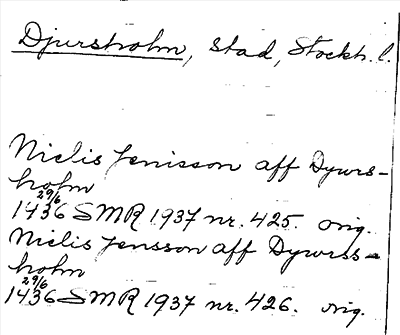 Djursholm, stad, Stockh. l.
Nielis Jenisson aff Dywrs-
holm
29/6
1436 SMR 1937 nr. 425. orig.
Nielis Jensson aff Dywrss-
holm
29/6
1436 SMR 1937 nr. 426. orig.